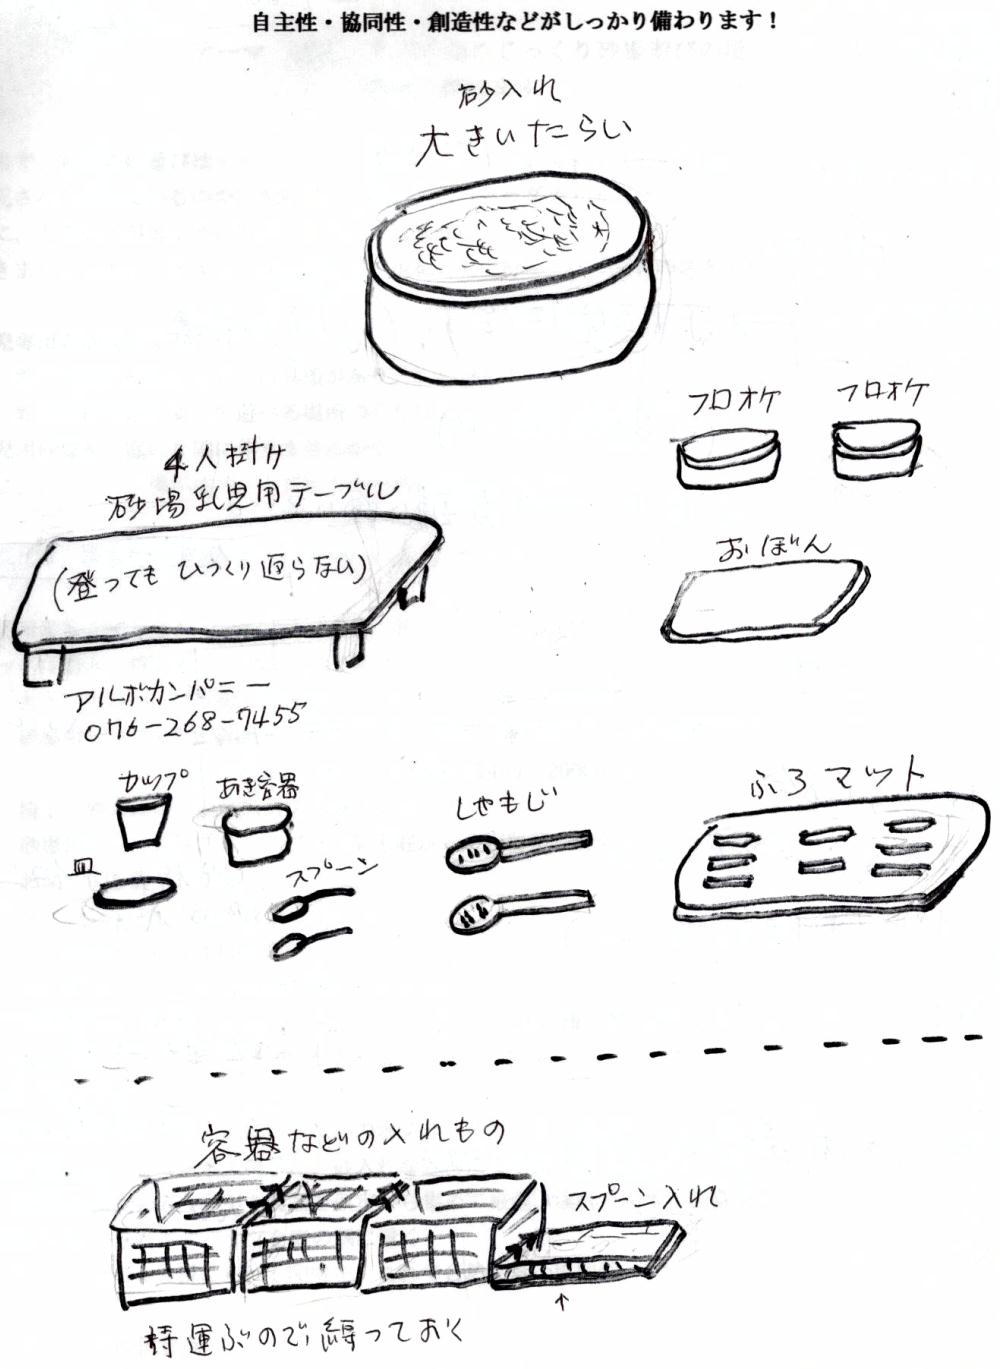 自主性・協同性・創造性などがしっかり備わります！
砂入れ
大きいたらい
フロオケ
フロオケ
4人掛け
砂場乳児用テーブル
(登ってもひっくり返らない)
おぼん
アルボカンパニー
076-268-7455
カップ
あき容器
しゃもじ
ふろマット
皿
スプーン
容器などの入れもの
スプーン入れ
持運ぶので縛っておく